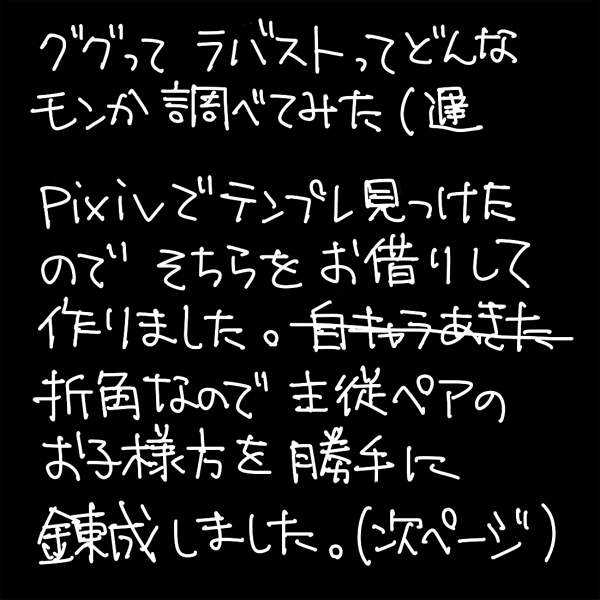 ググって ラバストってどんな
モンか 調べてみた(遅
Pixivでテンプレ見っけた
ので そちらを お借りして
作りました。自キャラあきた
折角なので 主従ペアの
お子様方を 勝手に
錬成しました。(次ページ)